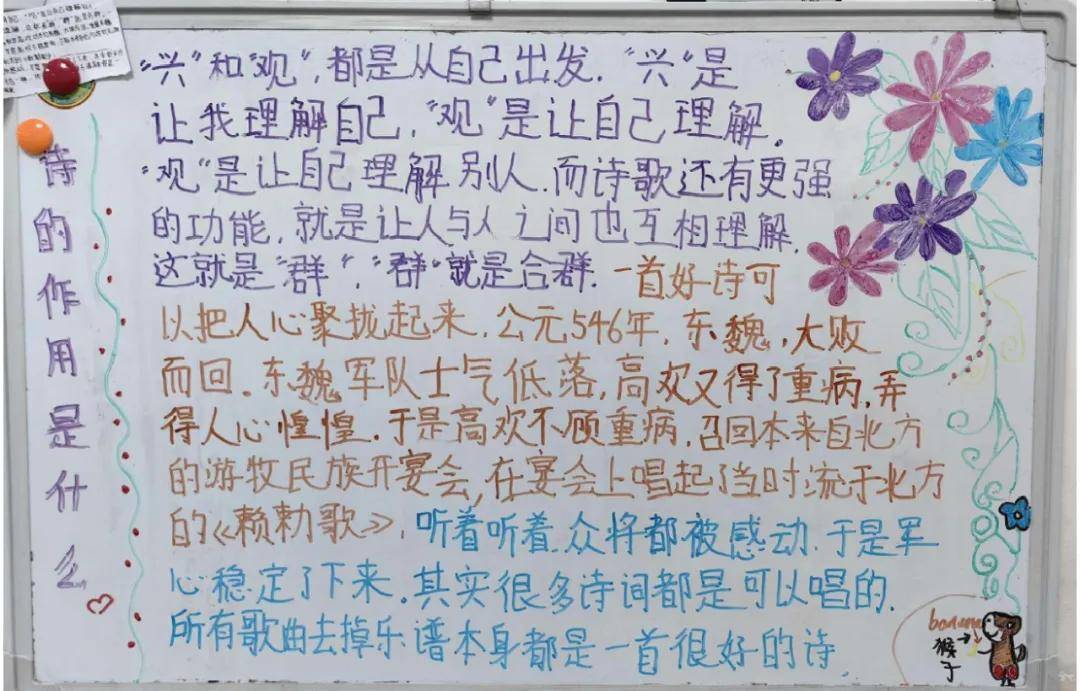 诗的作用是什么
“兴”和“观”,都是从自己出发.“兴”是
让我理解自己,“观”是让自己理解。
“观”是让自己理解别人.而诗歌还有更强
的功能,就是让人与人之间也互相理解.
这就是“群”,“群”就是合群.一首好诗可
以把人心聚拢起来.公元546年,东魏,大败
而回.东魏军队士气低落,高欢又得了重病,弄
得人心惶惶.于是高欢不顾重病,召回本来自北方
的游牧民族开宴会,在宴会上唱起了当时流于北方
的《赖勅歌》,听着听着,众将都被感动.于是军
心稳定了下来.其实很多诗词都是可以唱的.
所有歌曲去掉乐谱本身都是一首很好的诗.
banana
猴子